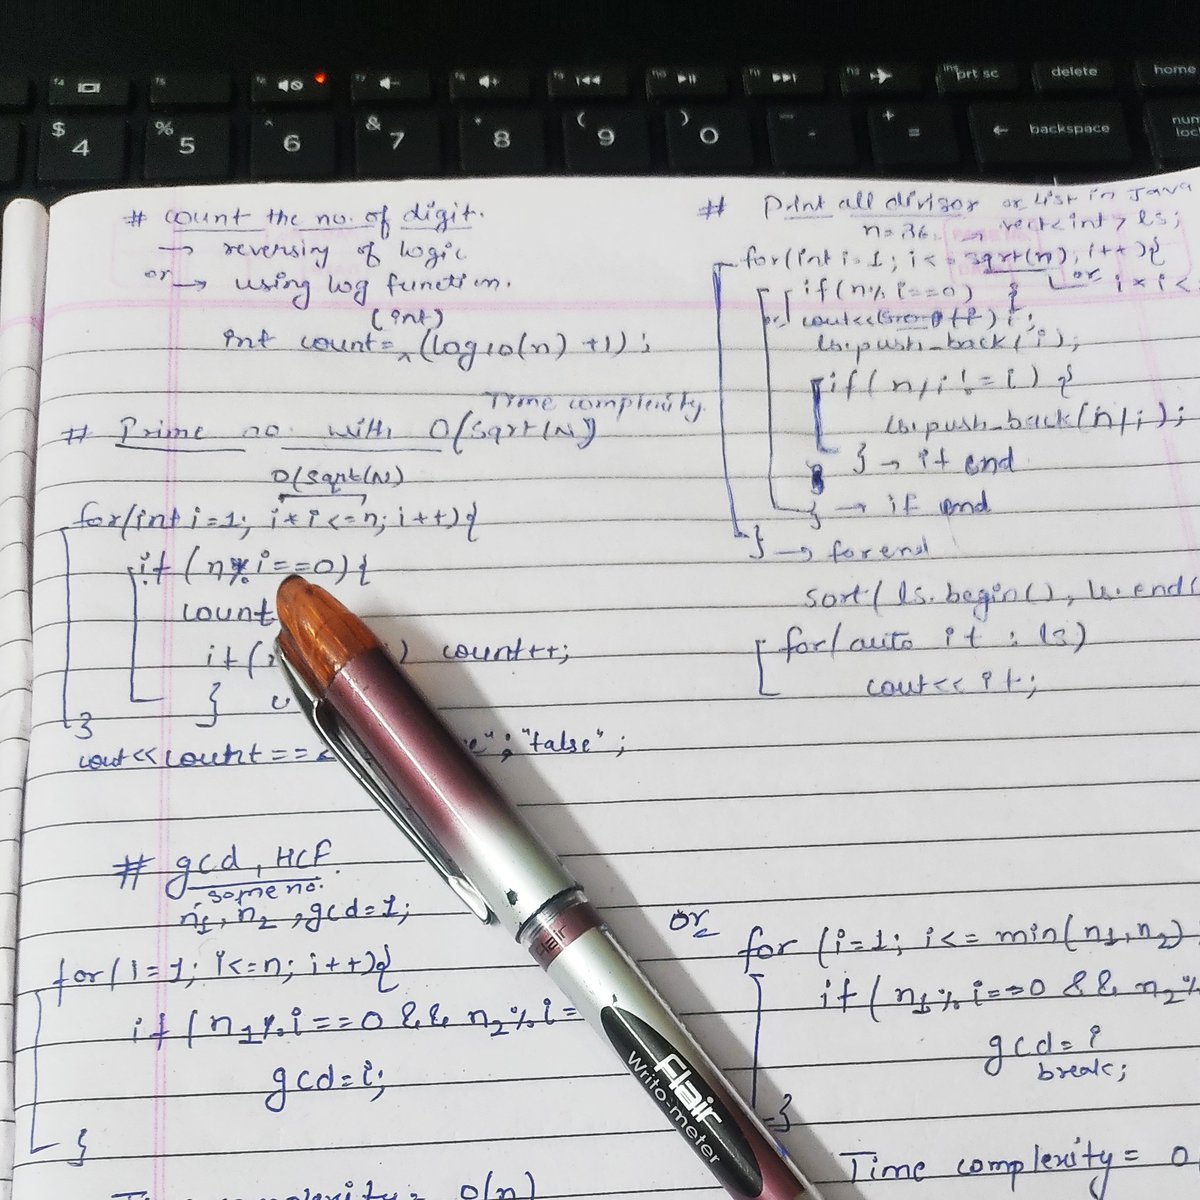 f4 f5 f6 f7 f8 f9 f10 f11 f12 prt sc delete home
$ 4 % 5 ^ 6 & 7 * 8 ( 9 ) 0 - + = ← backspace num loc
# count the no. of digit.
→ reversing of logic
or → using log function.
(int)
int count= ^ (log10(n) +1);
Time complexity
# Prime no. with O(sqrt(N))
O(sqrt(N))
for(int i=1; i*i<=n; i++){
if (n%i==0){
count
if( ) count++;
}
}
cout<<count== "; "false";
# gcd, HCF
some no.
n1, n2, gcd=1;
for(i=1; i<=n; i++){
if (n1%i==0 && n2%i=
gcd=i;
}
O(n)
# Print all divisor or list in Java
n=36. → vect<int> ls;
for(int i=1; i<=sqrt(n); i++){
or i*i<
if(n%i==0) {
ls.push_back(i);
if(n/i!=i) {
ls.push_back(n/i);
} → if end
} → if end
} → for end
sort(ls.begin(), ls.end(
for(auto it : ls)
cout<<it;
or
for (i=1; i<=min(n1,n2)
if(n1%i==0 && n2%
gcd=i
break;
}
Time complexity= O
Flair
Flair
Writo-meter